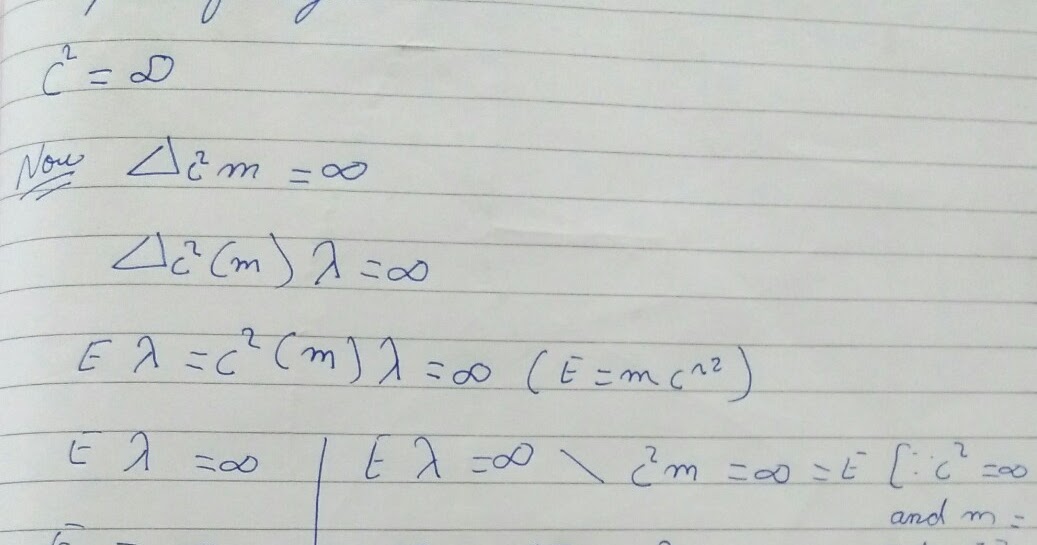 c² = ∞
Now Δc²m = ∞
Δc²(m) λ = ∞
E λ = c²(m) λ = ∞ (E = mc^2)
E λ = ∞ | E λ = ∞ \ c²m = ∞ = E [∵ c² = ∞
and m =